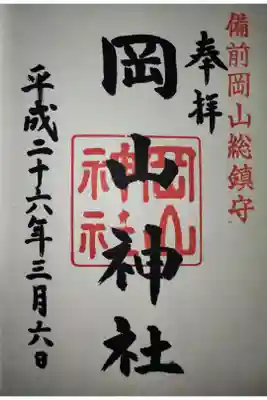 備前岡山総鎮守
奉拝
岡山神社
岡山
神社
平成二十六年三月六日